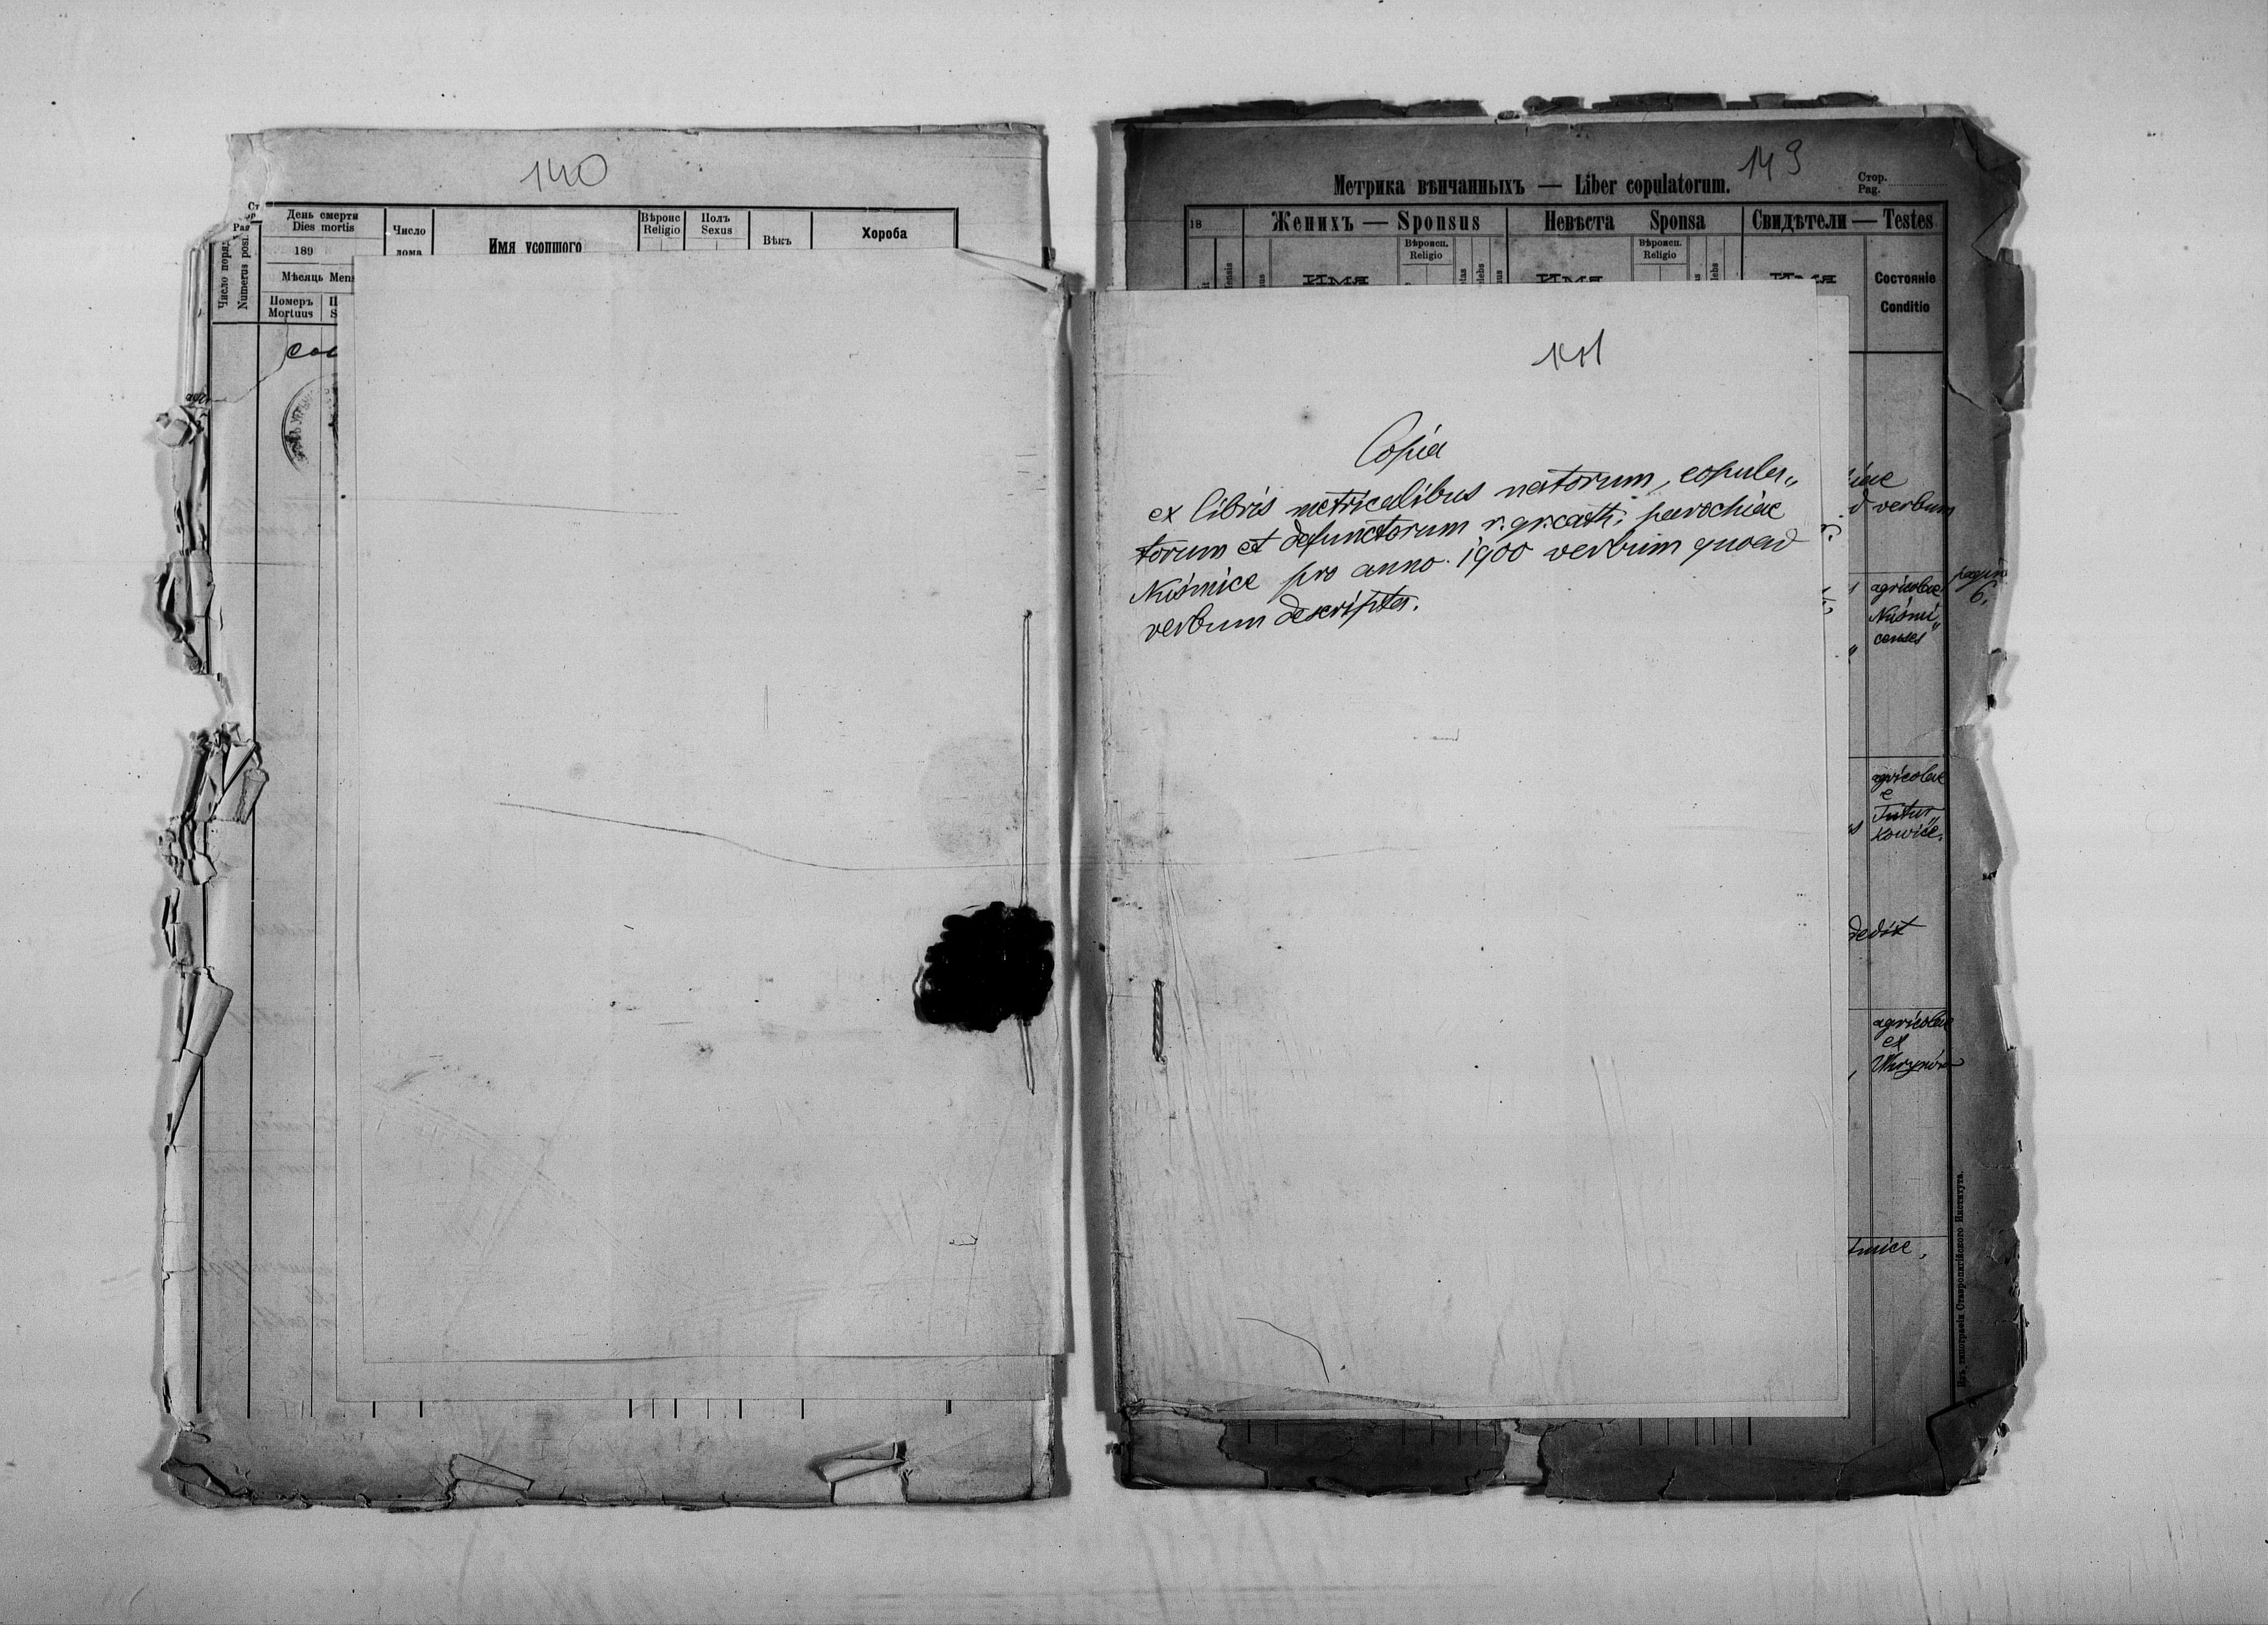 140
День смерти
Dies mortis
189
Мѣсяць Mens
Число поряд
Numerus posi
Померъ
Mortuus
Число
дома
Имя усопшого
Вѣроис
Religio
Полъ
Sexus
Вѣкъ
Хороба
149
Метрика вѣнчанныхъ — Liber copulatorum.
Стор.
Pag.
18
Женихъ — Sponsus
Невѣста Sponsa
Свидѣтели — Testes
Имя
Вѣроисп.
Religio
Имя
Вѣроисп.
Religio
Имя
Состояніе
Conditio
141
Copia
ex libris metricalibus natorum, copula„
torum et defunctorum r. gr. cath. parochiae
Nuśmice pro anno 1900 verbum quoad
verbum descripta.
verbum
agricolae
Nuśmi„
censes
pagina
6.
agricolae
e
Tutur„
kowice.
dedit
agricolae
ex
Uhrynów
śmice,
Изъ типографіи Ставропигійского Института.